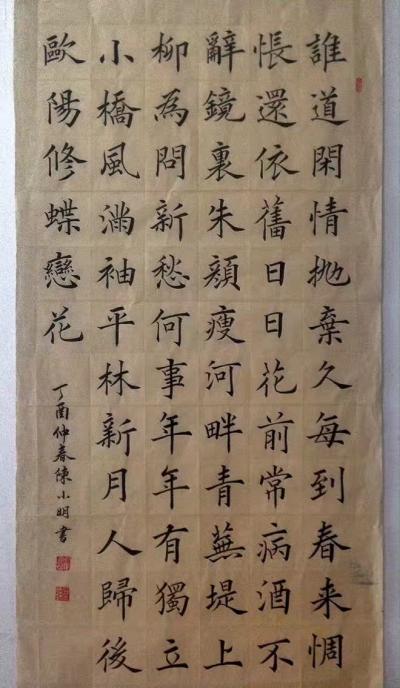 誰道閑情抛棄久每到春来惆
悵還依舊日日花前常病酒不
辭鏡裏朱顔瘦河畔青蕪堤上
柳為問新愁何事年年有獨立
小橋風滿袖平林新月人歸後
歐陽修蝶戀花
丁酉仲春陳小明書